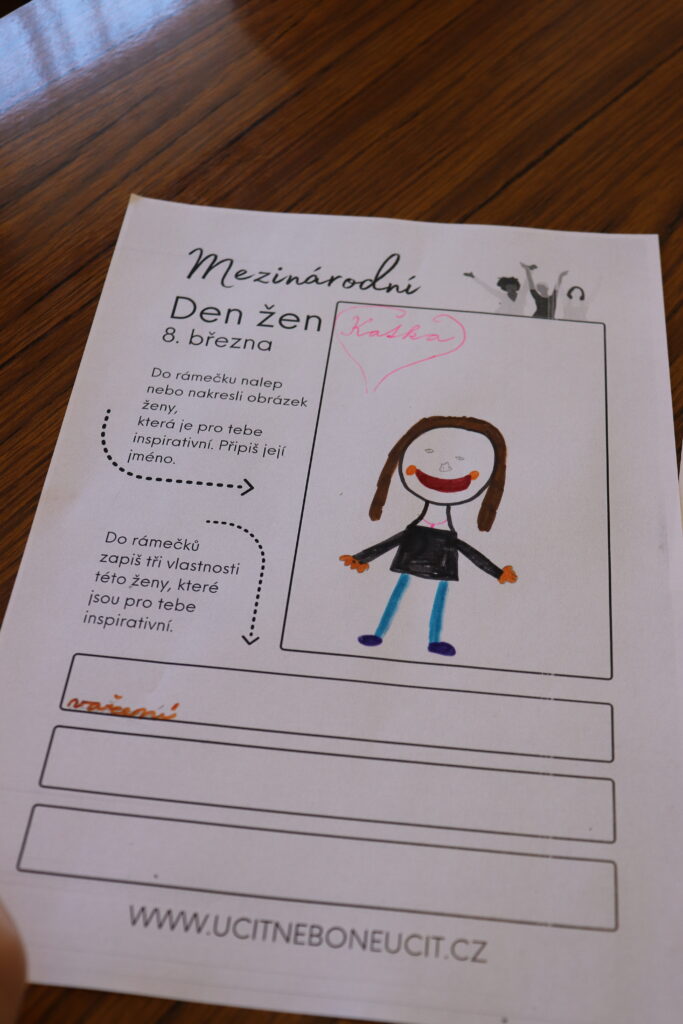 Mezinárodní
Den žen
8. března
Kaťka
Do rámečku nalep
nebo nakresli obrázek
ženy,
která je pro tebe
inspirativní. Připiš její
jméno.
Do rámečků
zapiš tři vlastnosti
této ženy, které
jsou pro tebe
inspirativní.
vaření
WWW.UCITNEBONEUCIT.CZ